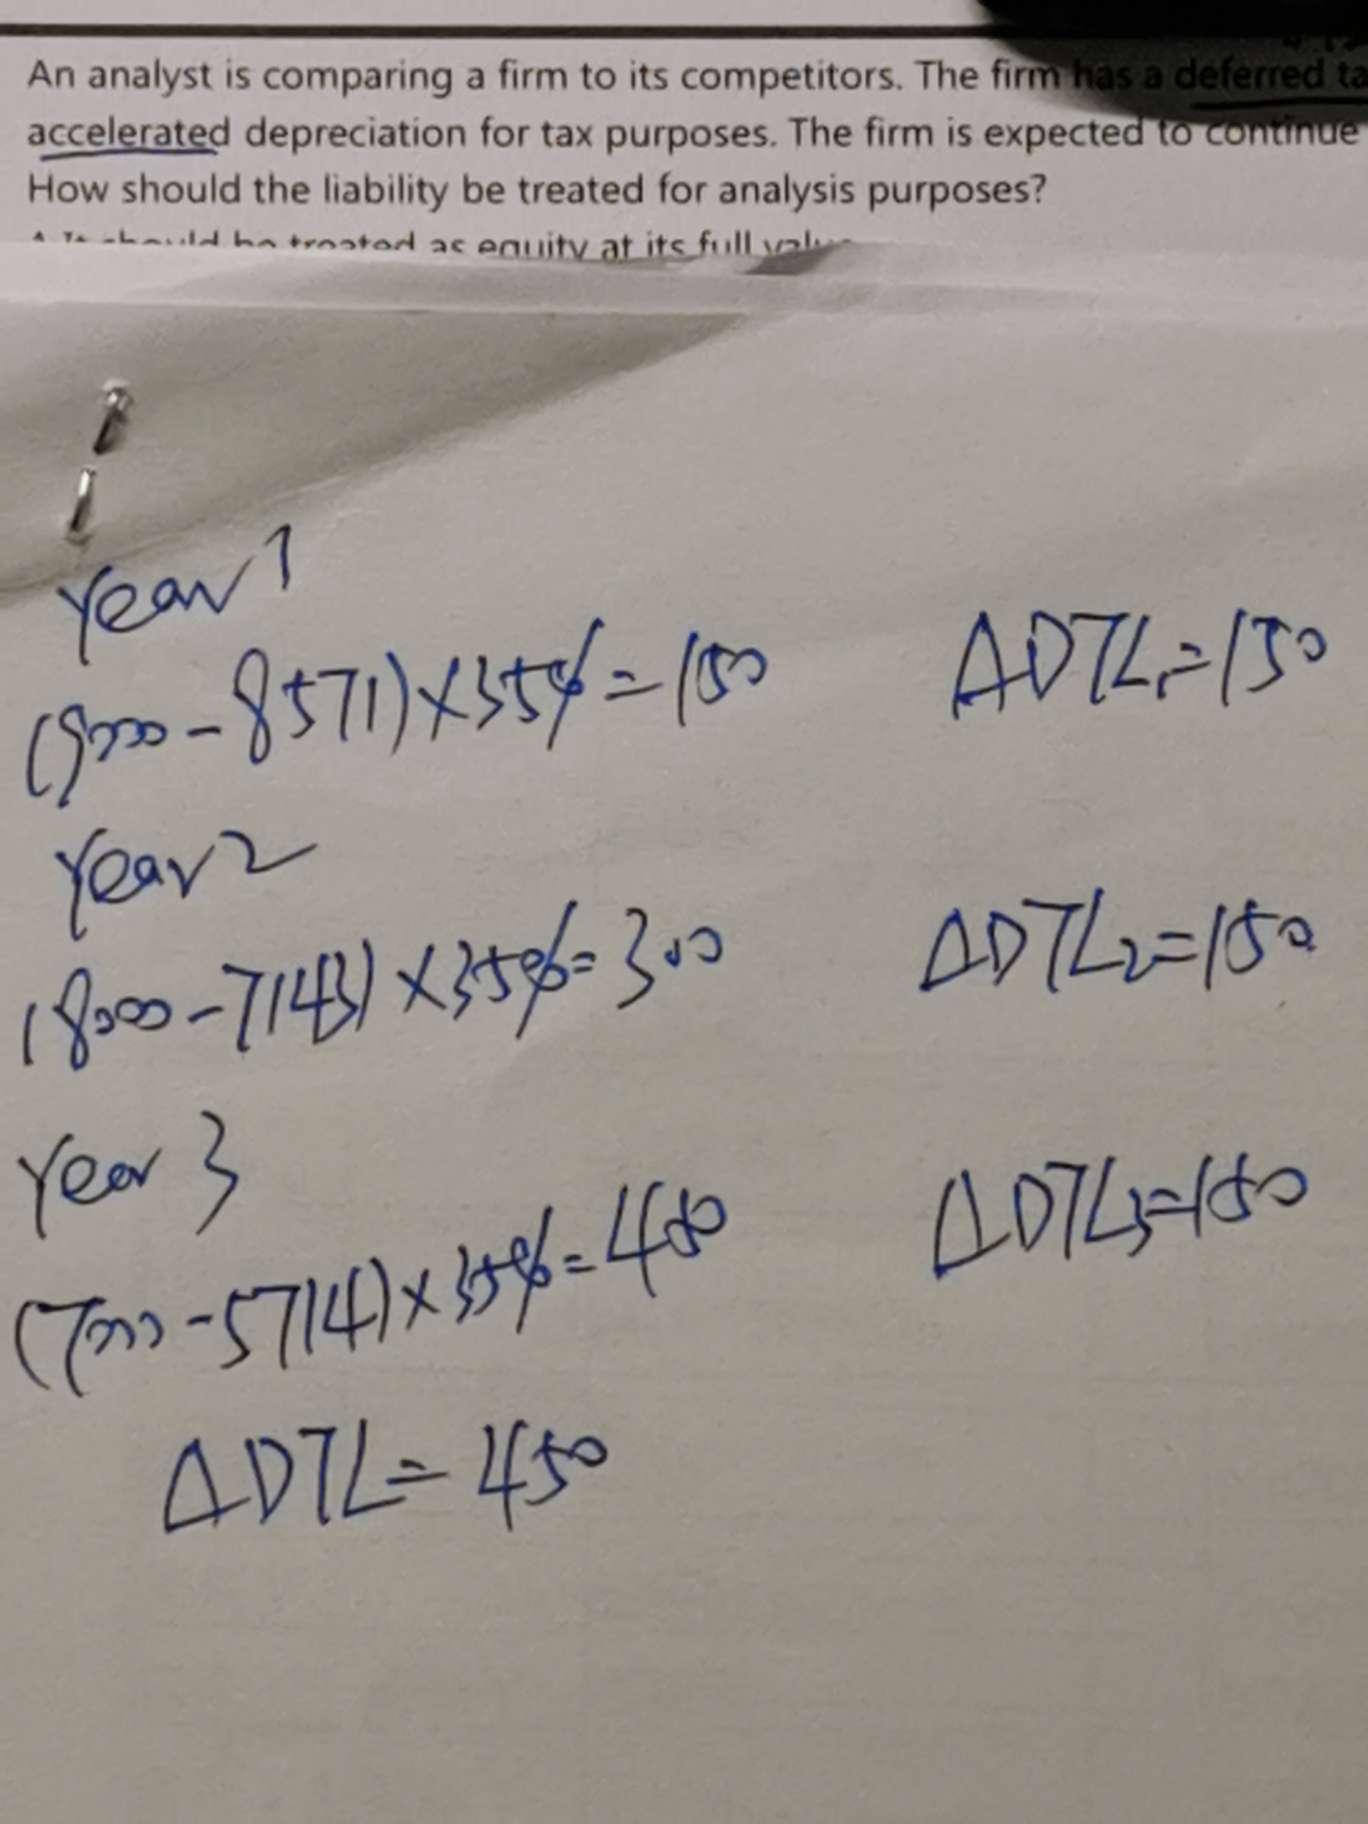 An analyst is comparing a firm to its competitors. The firm has a deferred ta
accelerated depreciation for tax purposes. The firm is expected to continue
How should the liability be treated for analysis purposes?
A It should be treated as equity at its full value
Year 1
(9000-8571)×35%=150 ΔDTL₁=150
Year 2
(8000-7143)×35%=300 ΔDTL₂=150
Year 3
(7000-5714)×35%=450 ΔDTL₃=150
ΔDTL=450